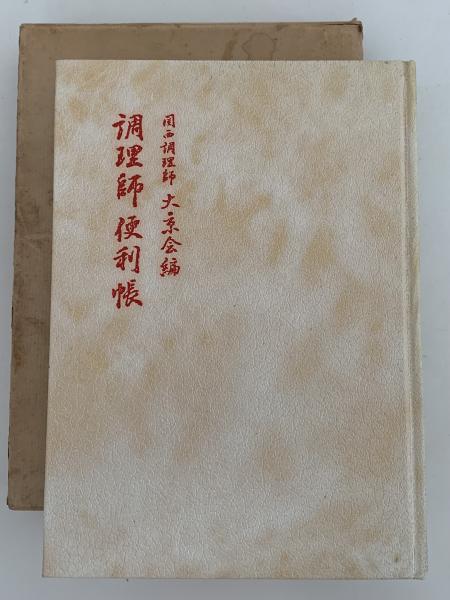 関西調理師 大京会編
調理師便利帳